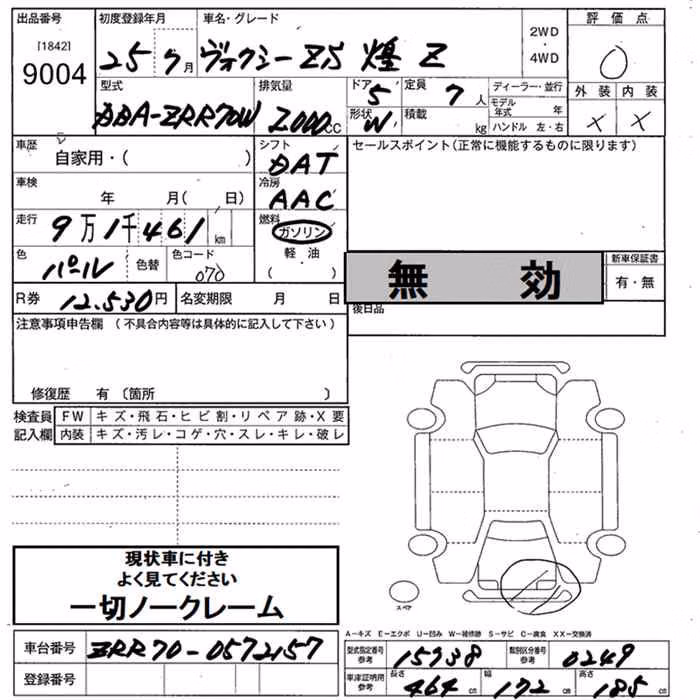 出品番号 初度登録年月 車名・グレード 評価点
[1842] 9004 25 7月 ヴォクシー ZS 煌 Z 2WD・4WD 0
型式 排気量 ドア 定員 ディーラー・並行 外装 内装
DBA-ZRR70W 2000cc 5 7人 モデル年式 年 × ×
形状 W 積載 kg ハンドル 左・右
車歴 シフト セールスポイント(正常に機能するものに限ります)
自家用・( ) DAT
車検 冷房
年 月( 日) AAC
走行 燃料
9万1千461km ガソリン
色 色替 色コード 軽油
パール 070 ( )
無効
新車保証書
有・無
R券 12.530円 名変期限 月 日 後日品
注意事項申告欄 (不具合内容等は具体的に記入して下さい)
修復歴 有 〔箇所 〕
検査員 FW キズ・飛石・ヒビ割・リペア跡・X要
記入欄 内装 キズ・汚レ・コゲ・穴・スレ・キレ・破レ
現状車に付き
よく見てください
一切ノークレーム
スペア
A-キズ E-エクボ U-凹み W-補修跡 S-サビ C-腐食 XX-交換済
車台番号 ZRR70-0572157 型式指定番号 参考 15738 類別区分番号 参考 0249
登録番号 車庫証明用 参考 長さ 464cm 幅 172cm 高さ 185cm